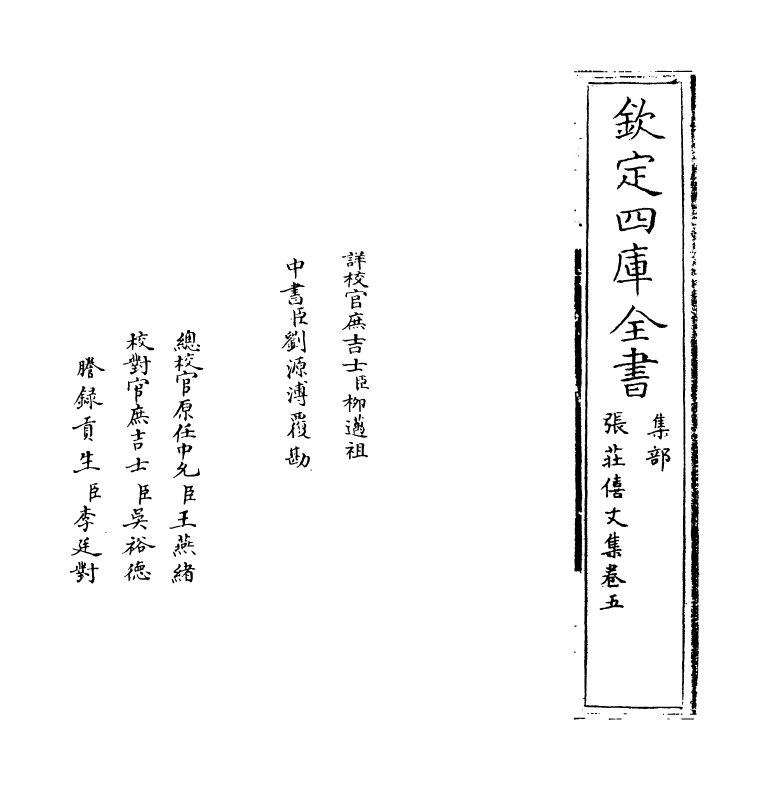 欽定四庫全書
集部
張莊僖文集卷五
詳校官庶吉士臣柳邁祖
中書臣劉源溥覆勘
總校官原任中允臣王燕緒
校對官庶吉士臣吳裕德
謄錄貢生臣李廷對